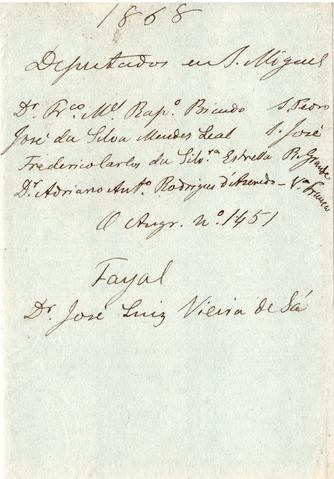 1868
Deputados em S. Miguel
Dr. Frco. Mel. Rapo. Bicudo S. Pedro
José da Silva Mendes Leal S. José
Frederico Carlos da Silvra Estrella R. Grande
Dr. Adriano Anto. Rodrigues d'Azevedo - Va Franca
O Angr. no. 1451
Fayal
Dr. José Luiz Vieira de Sá